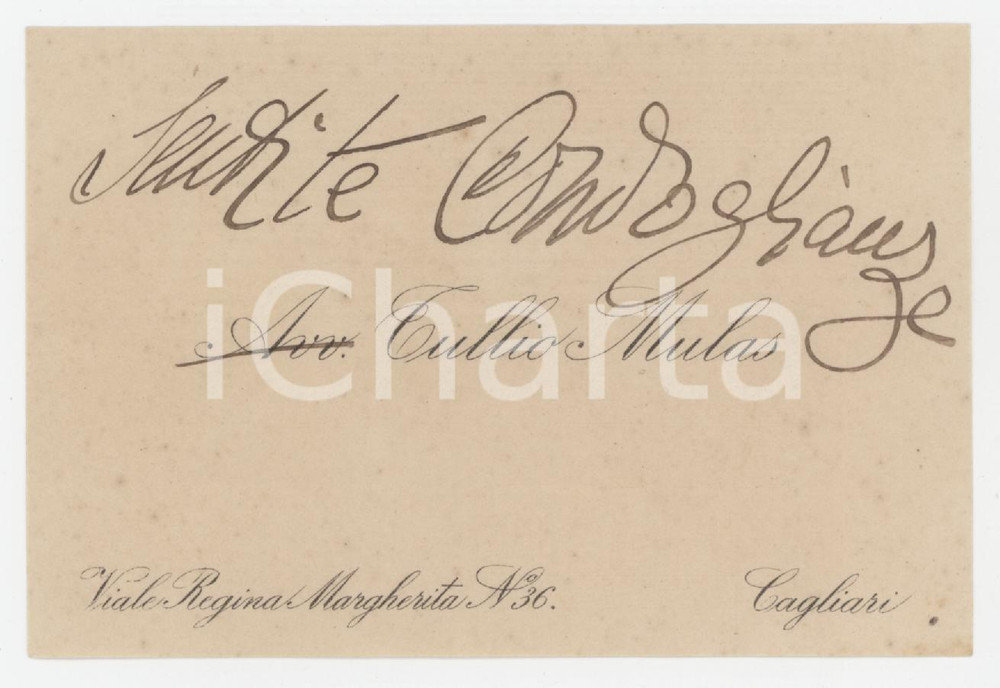 Sentite Condoglianze
Avv. Tullio Mulas
iCharta
Viale Regina Margherita Nº 36.
Cagliari